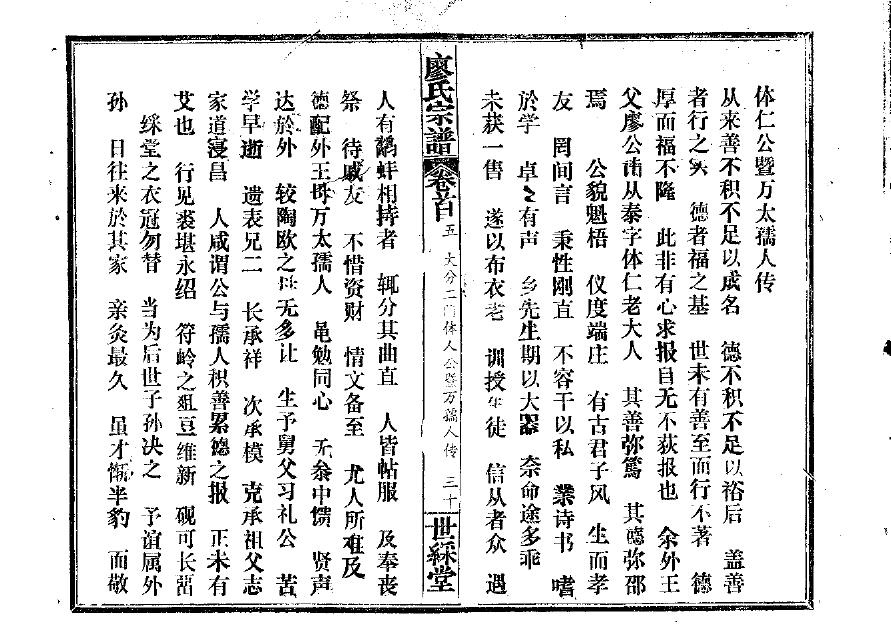 体仁公暨万太孺人传
从来善不积不足以成名 德不积不足以裕后 盖善
者行之实 德者福之基 世未有善至而行不著 德
厚而福不隆 此非有心求报自无不获报也 余外王
父廖公甫从泰字体仁老大人 其善弥笃 其德弥邵
焉 公貌魁梧 仪度端庄 有古君子风 生而孝
友 罔间言 秉性刚直 不容干以私 业诗书 嗜
於学 卓々有声 乡先生期以大器 奈命途多乖
未获一售 遂以布衣老 训授生徒 信从者众 遇
廖氏宗譜 卷首 五 大分二门体人公暨万孺人传 三十 世綵堂
人有鹬蚌相持者 辄分其曲直 人皆帖服 及奉丧
祭 待戚友 不惜资财 情文备至 尤人所难及
德配外王母万太孺人 黾勉同心 无忝中馈 贤声
达於外 较陶欧之母无多让 生予舅父习礼公 苦
学早逝 遗表兄二 长承祥 次承模 克承祖父志
家道寝昌 人咸谓公与孺人积善累德之报 正未有
艾也 行见裘堪永绍 符岭之俎豆维新 砚可长
綵堂之衣冠勿替 当为后世子孙决之 予谊属外
孙 日往来於其家 亲灸最久 虽才惭半豹 而敬